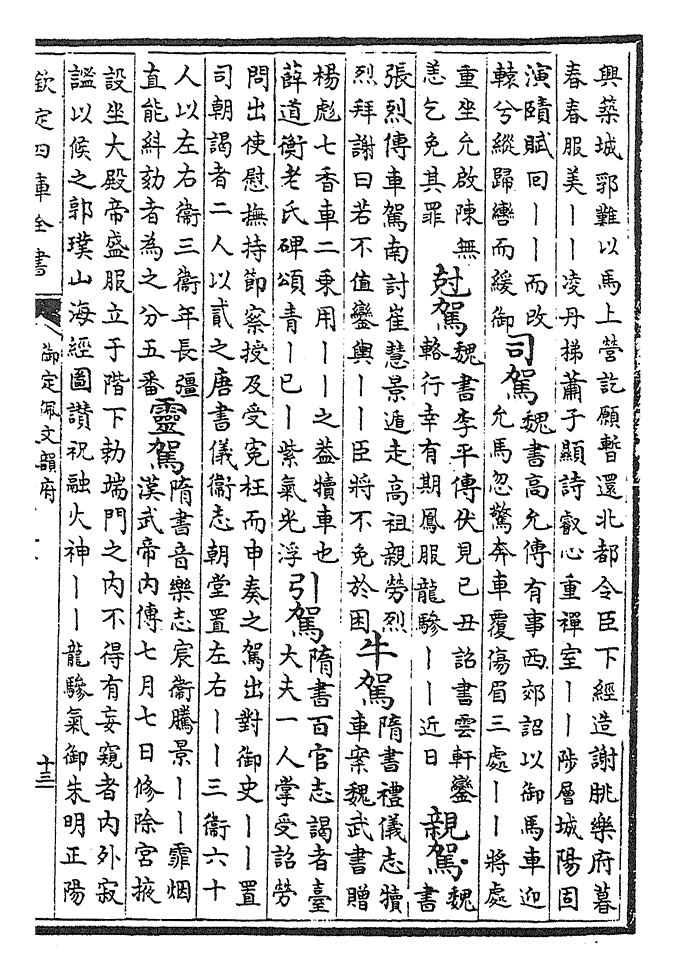 興築城郭難以馬上營訖願暫還北都令臣下經造謝朓樂府暮
春春服美丨丨凌丹梯蕭子顯詩叡心重禪室丨丨陟層城陽固
演賾賦回丨丨而改
轅兮縱歸轡而緩御
司駕
魏書高允傳有事西郊詔以御馬車迎
允馬忽驚奔車覆傷眉三處丨丨將處
重坐允啟陳無
恙乞免其罪
尅駕
魏書李平傳伏見已丑詔書雲軒鑾
輅行幸有期鳳服龍驂丨丨近日
親駕
魏
書
張烈傳車駕南討崔慧景遁走高祖親勞烈
烈拜謝曰若不值鑾輿丨丨臣將不免於困
牛駕
隋書禮儀志犢
車案魏武書贈
楊彪七香車二乗用丨丨之葢犢車也
薛道衡老氏碑頌青丨已丨紫氣光浮
引駕
隋書百官志謁者臺
大夫一人掌受詔勞
問出使慰撫持節察授及受寃枉而申奏之駕出對御史丨丨置
司朝謁者二人以貳之唐書儀衞志朝堂置左右丨丨三衞六十
人以左右衞三衞年長彊
直能糾劾者為之分五番
靈駕
隋書音樂志宸衞騰景丨丨霏烟
漢武帝内傳七月七日修除宮掖
設坐大殿帝盛服立于階下勅端門之内不得有妄窺者内外寂
謐以候之郭璞山海經圖讚祝融火神丨丨龍驂氣御朱明正陽
欽定四庫全書
御定佩文韻府
十三